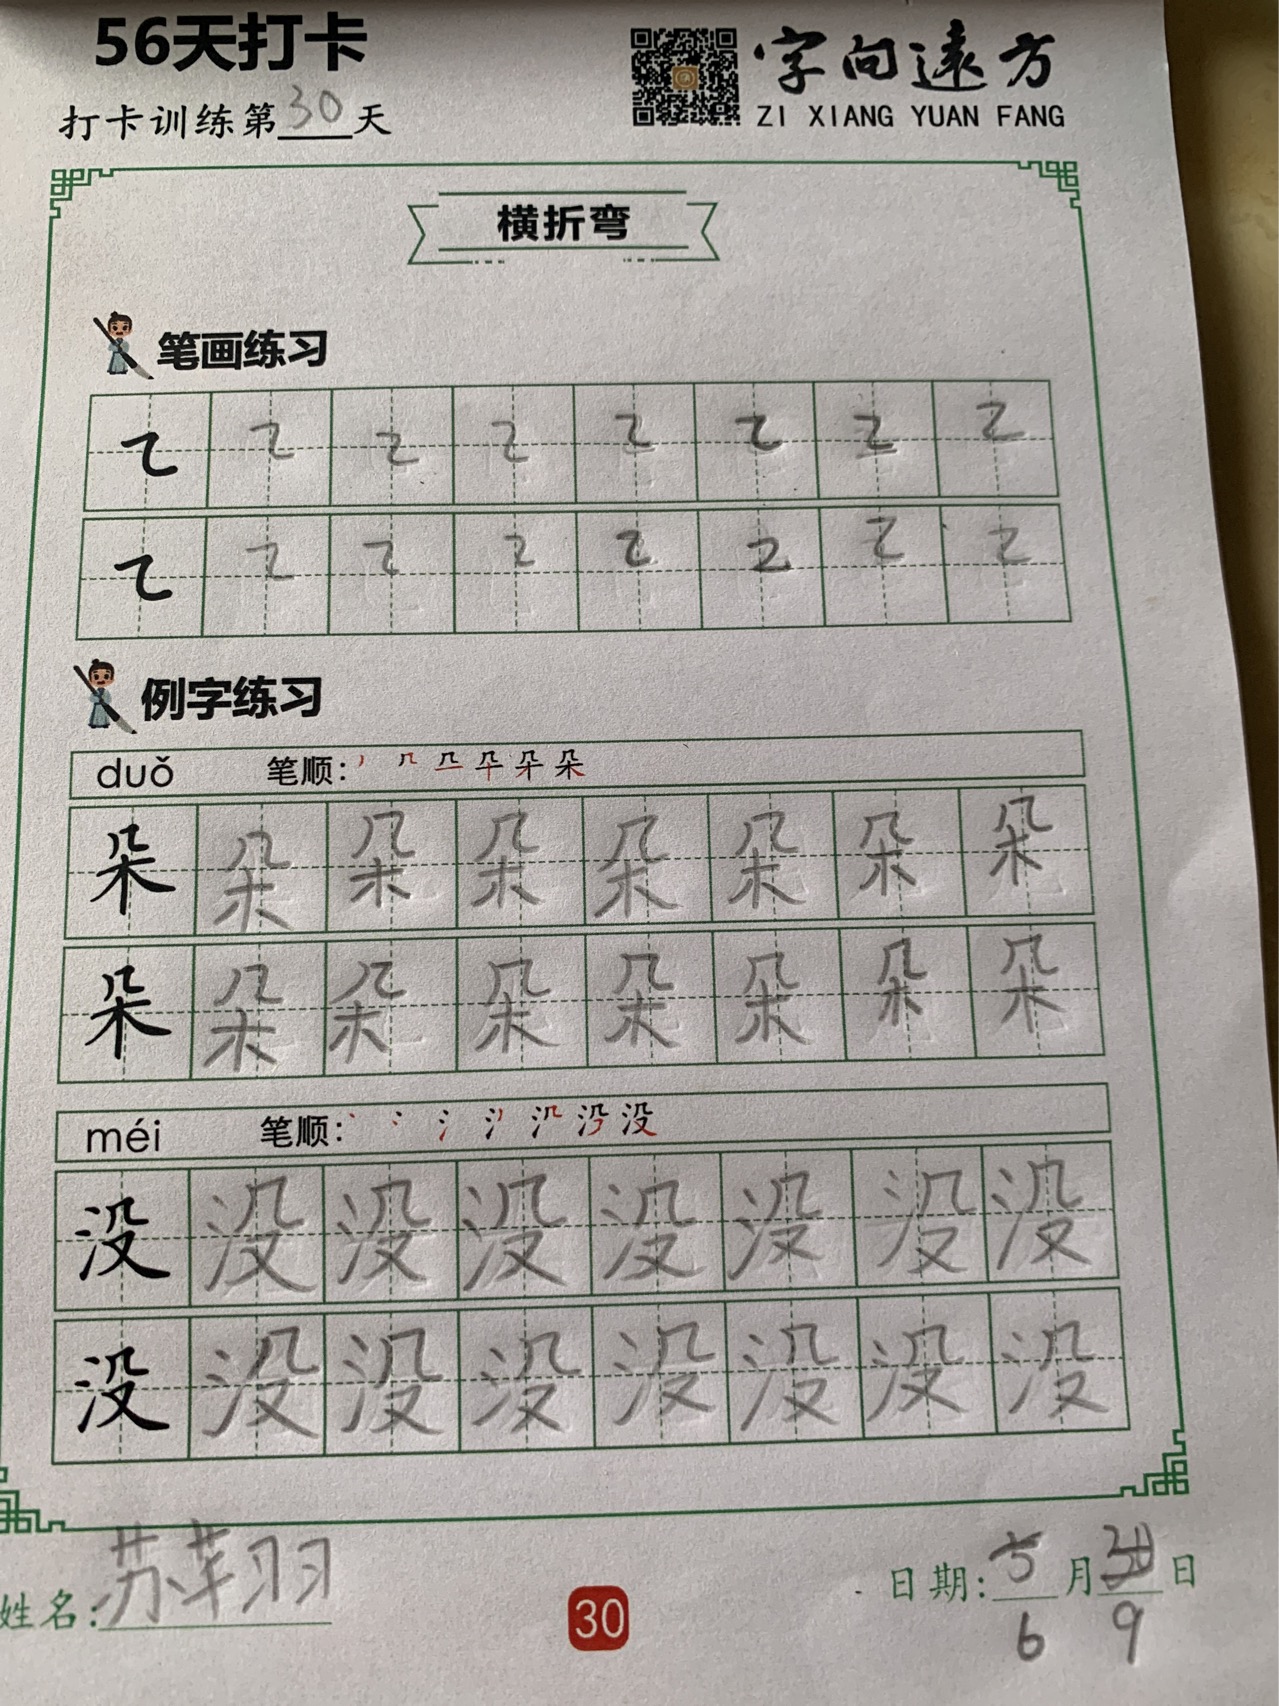 56天打卡
打卡训练第30天
字向远方
ZI XIANG YUAN FANG
横折弯
笔画练习
例字练习
duǒ 笔顺:
朵 朵 朵 朵 朵 朵 朵 朵
朵 朵 朵 朵 朵 朵 朵 朵
méi 笔顺:
没 没 没 没 没 没 没 没
没 没 没 没 没 没 没 没
姓名:苏
30
日期: 月 日
6 9